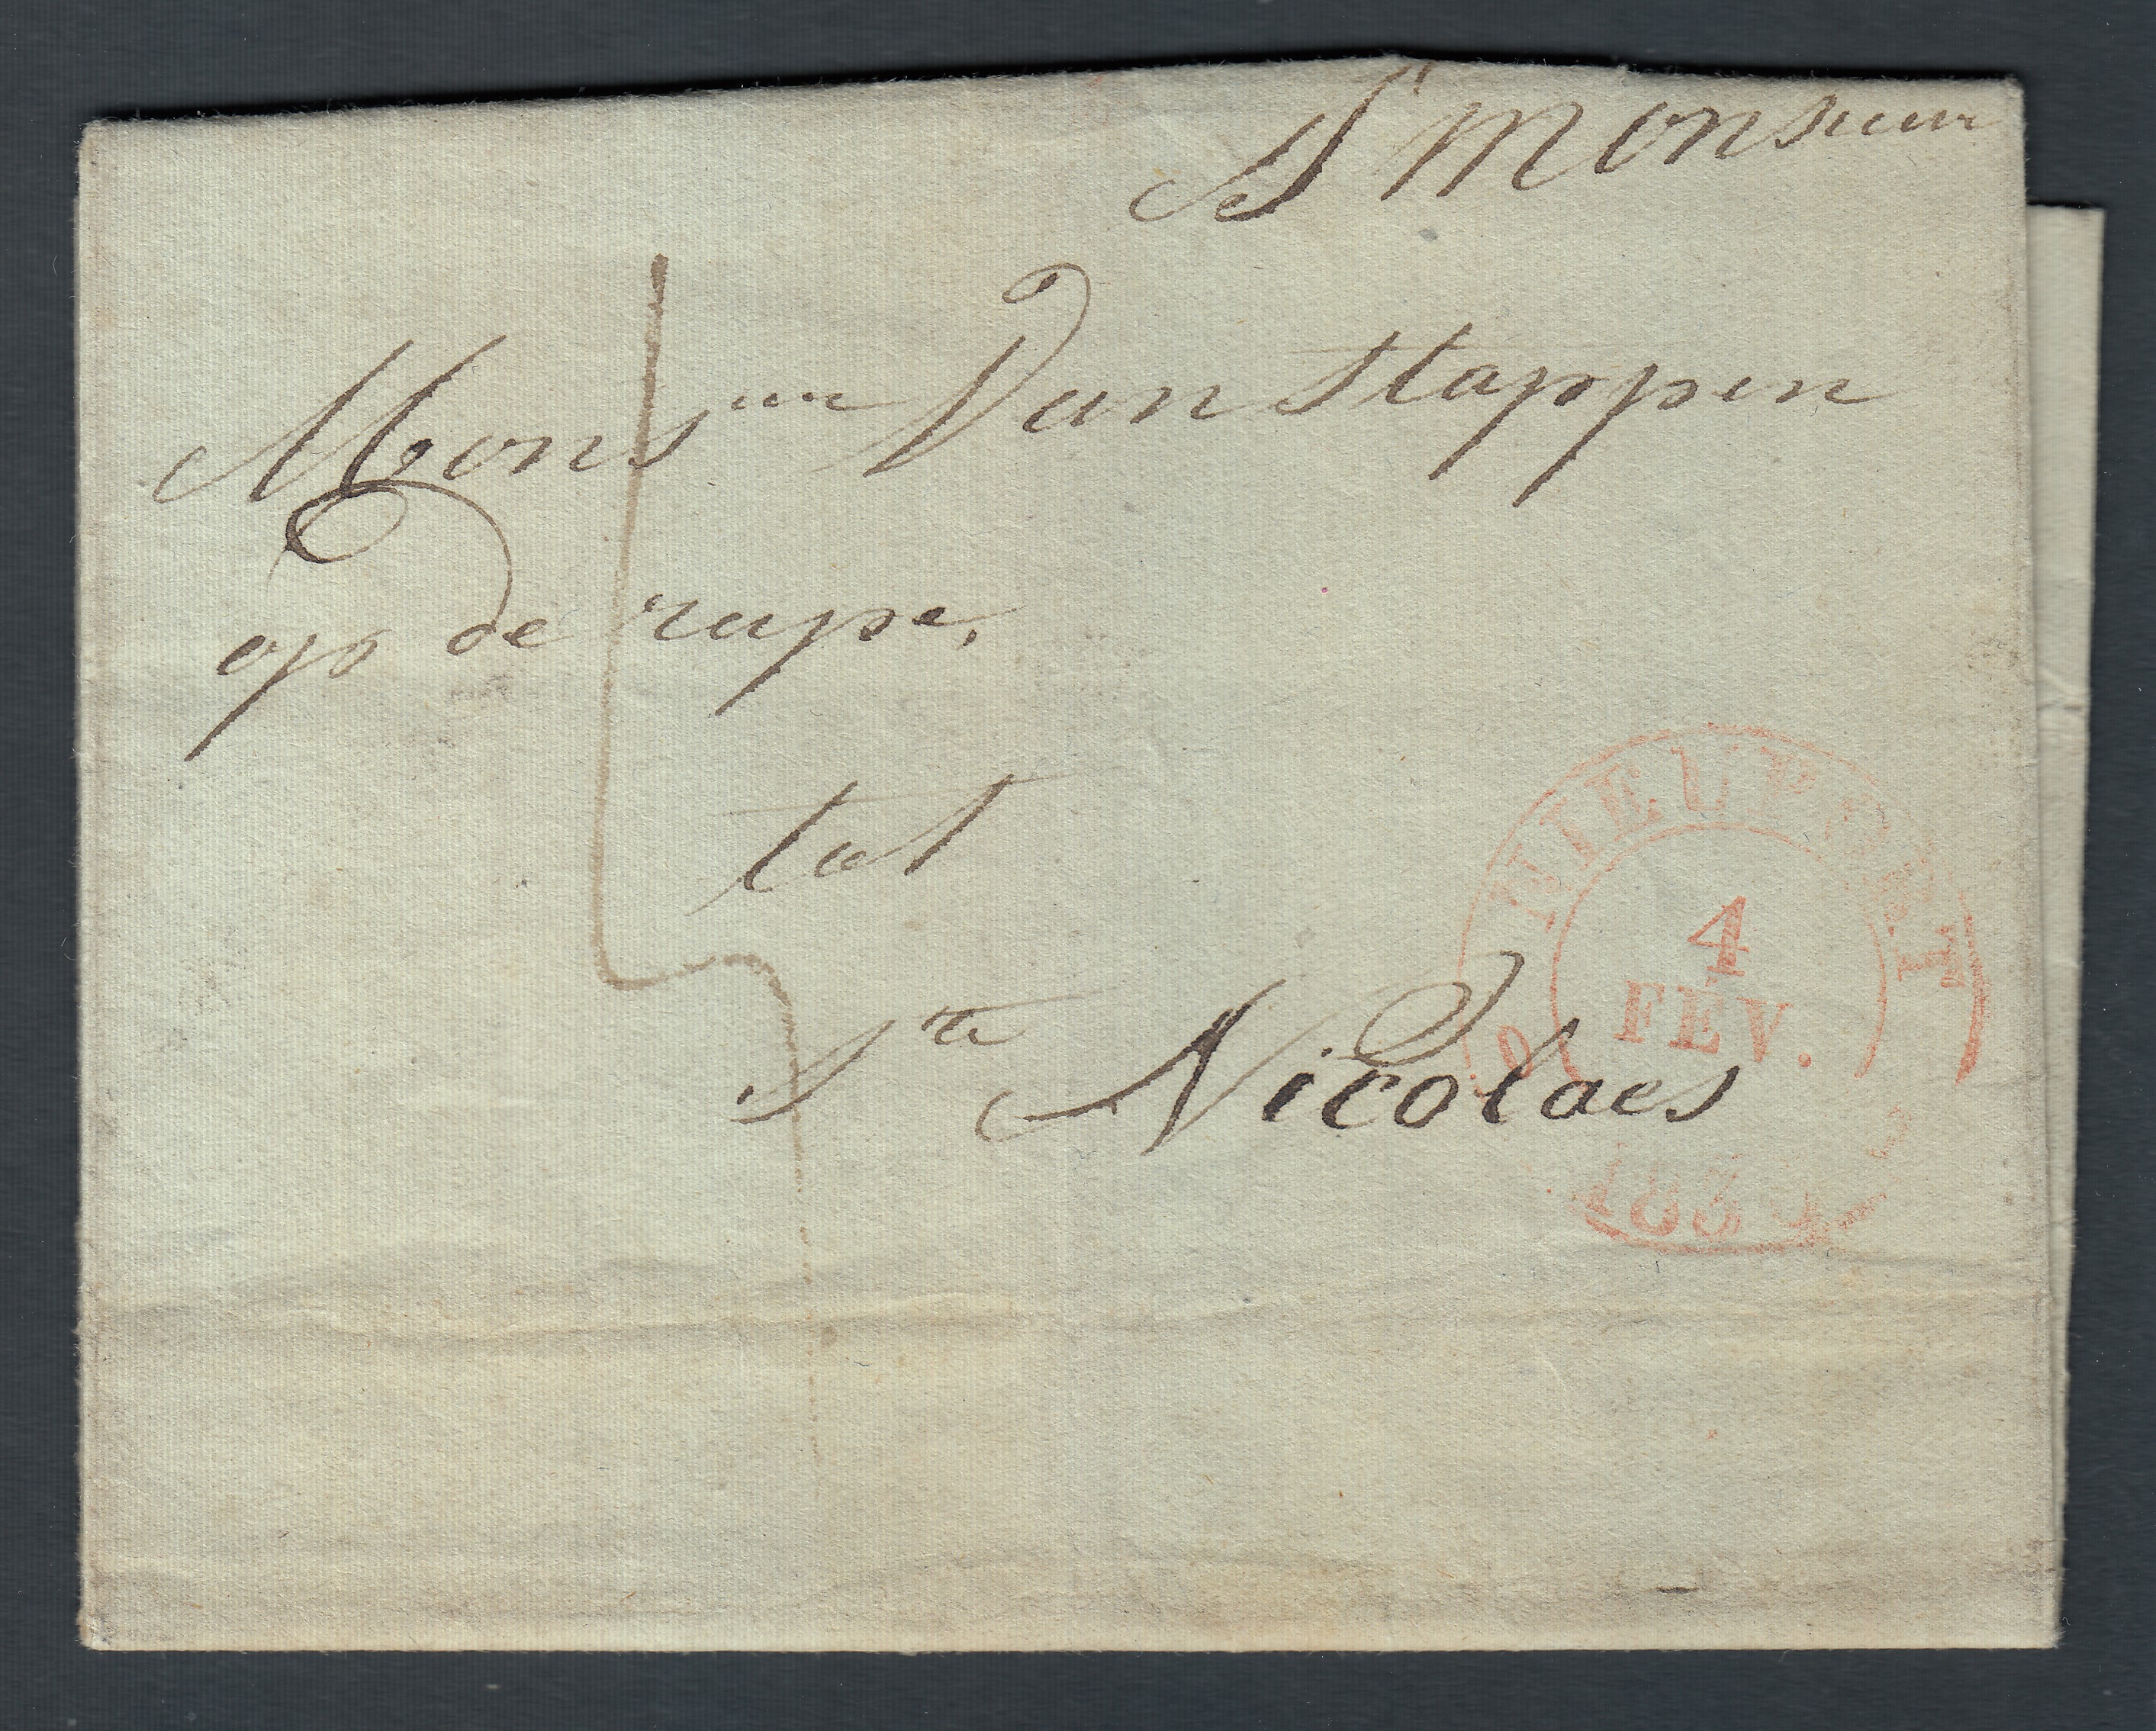 A Monsieur
Monsieur Van Stappen
op de rape,
tot
Ste Nicolaes
NIEUPORT
4
FEV.